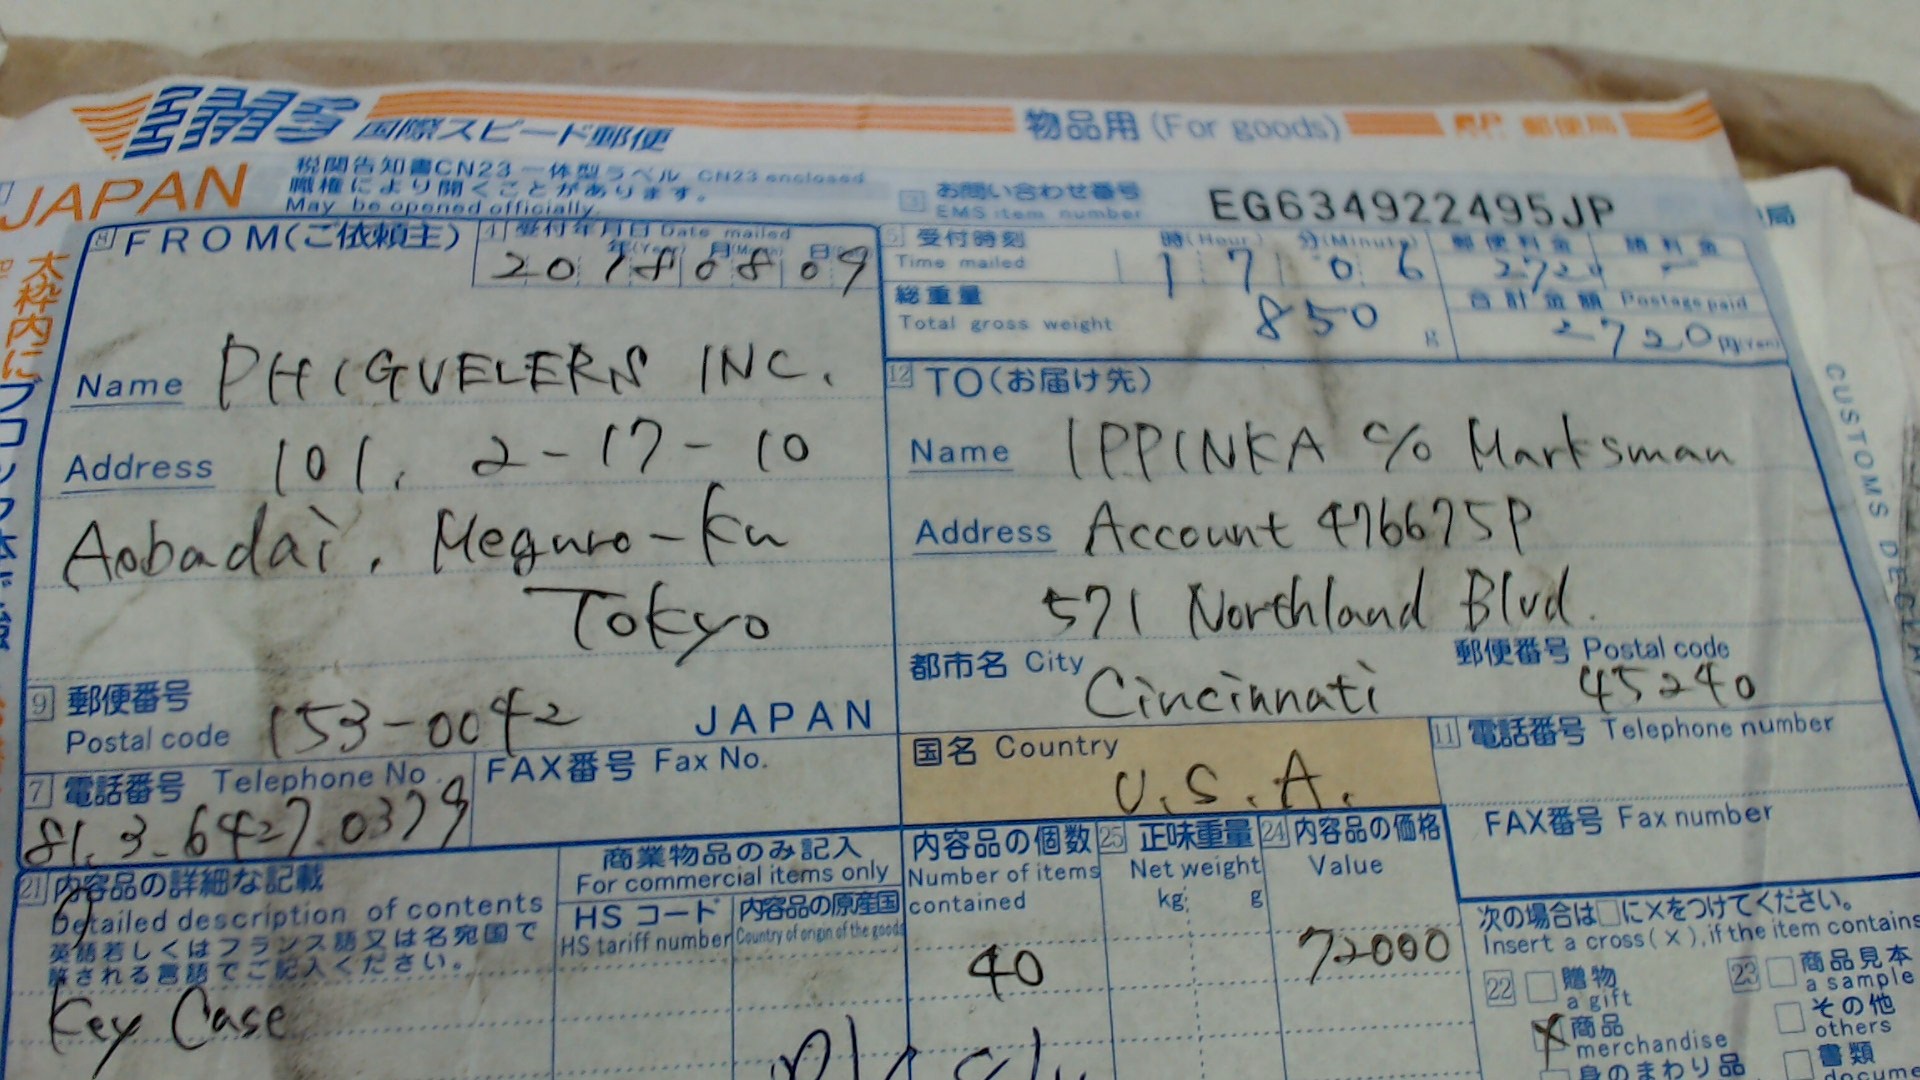 EMS 国際スピード郵便
物品用 (For goods)
郵便局
JAPAN
税関告知書CN23一体型ラベル CN23 enclosed
職権により開くことがあります。
May be opened officially.
3 お問い合わせ番号
EMS item number
EG634922495JP
8 FROM(ご依頼主)
4 受付年月日 Date mailed
年(Year) 月(Month) 日
2018 08 09
5 受付時刻
Time mailed
時(Hour) 分(Minute)
17 06
郵便料金
諸料金
総重量
Total gross weight
850 g
合計金額 Postage paid
2720 円(Yen)
太枠内に
Name PHIGVELERS INC.
Address 101, 2-17-10
Aobadai, Meguro-ku
Tokyo
9 郵便番号
Postal code 153-0042
JAPAN
7 電話番号 Telephone No.
81.3.6427.0379
FAX番号 Fax No.
12 TO(お届け先)
Name IPPINKA c/o Marksman
Address Account 476675P
571 Northland Blvd.
都市名 City Cincinnati
郵便番号 Postal code
45240
国名 Country
U.S.A.
11 電話番号 Telephone number
FAX番号 Fax number
CUSTOMS
21 内容品の詳細な記載
Detailed description of contents
英語若しくはフランス語又は名宛国で
許される言語でご記入ください。
Key Case
商業物品のみ記入
For commercial items only
HSコード
HS tariff number
内容品の原産国
Country of origin of the goods
内容品の個数
Number of items
contained
40
25 正味重量
Net weight
kg g
24 内容品の価格
Value
72000
次の場合は□に×をつけてください。
Insert a cross(×), if the item contains
22 贈物
a gift
X 商品
merchandise
身のまわり品
23 商品見本
a sample
その他
others
書類